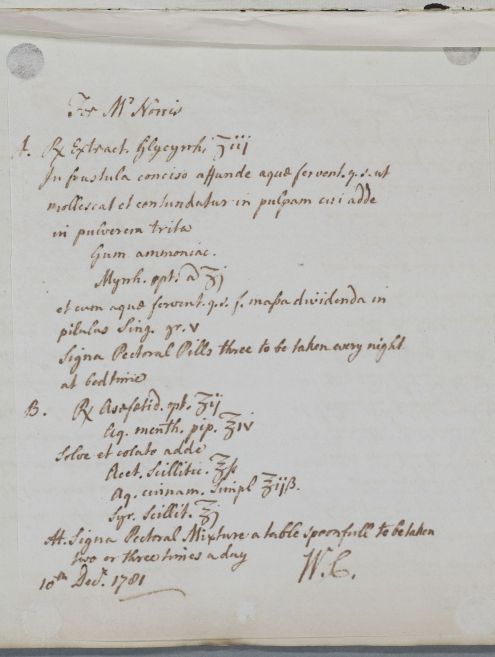 For Mr Norris
A. ℞ Extract. Glycyrrh. ʒiij
In frustula conciso affunde aquæ fervent. q.s. ut
mollescat et contundatur in pulpam cui adde
in pulverem trita
Gum ammoniac.
Myrrh. opt. a ʒj
et cum aquæ fervent. q.s. f. maſsa dividenda in
pilulas sing. gr. v
Signa Pectoral Pills three to be taken every night
at bedtime
B. ℞ Asafœtid. opt. ʒij
Aq. menth. pip. ℥iv
Solve et colato adde
Acet. Scillitic. ℥ſs
Aq. cinnam. simpl ℥ijß.
Syr. Scillit. ℥j
M. Signa Pectoral Mixture a table spoonfull to be taken
two or three times a day
10th Decr. 1781 W.C.